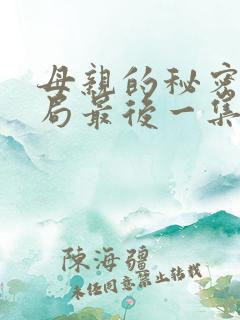 母親的秘密
局最後一集
陳海疆
未经同意禁止转载